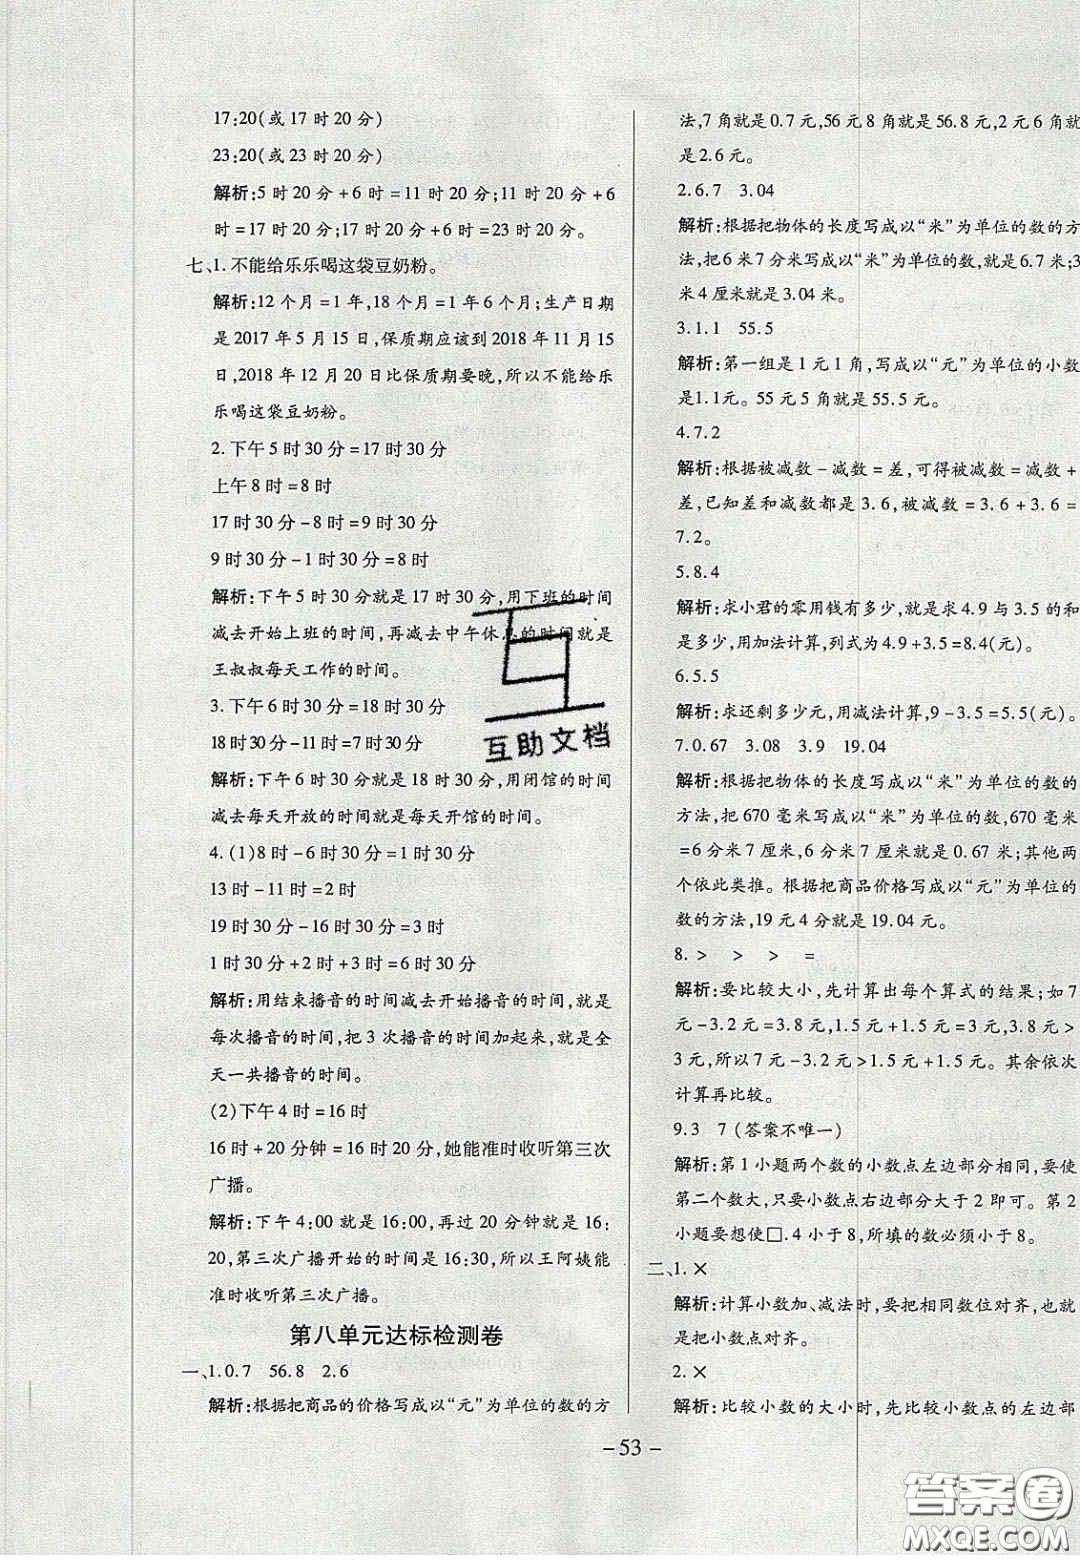 17:20(或 17 时 20 分)
23:20(或 23 时 20 分)
解析:5 时 20 分+6 时=11 时 20 分;11 时 20 分+6
时=17 时 20 分;17 时 20 分+6 时=23 时 20 分。
七、1. 不能给乐乐喝这袋豆奶粉。
解析:12 个月=1 年,18 个月=1 年 6 个月;生产日期
是 2017 年 5 月 15 日,保质期应该到 2018 年 11 月 15
日,2018 年 12 月 20 日比保质期要晚,所以不能给乐
乐喝这袋豆奶粉。
2. 下午 5 时 30 分=17 时 30 分
上午 8 时=8 时
17 时 30 分-8 时=9 时 30 分
9 时 30 分-1 时 30 分=8 时
解析:下午 5 时 30 分就是 17 时 30 分,用下班的时间
减去开始上班的时间,再减去中午休息的时间就是
王叔叔每天工作的时间。
3. 下午 6 时 30 分=18 时 30 分
18 时 30 分-11 时=7 时 30 分
解析:下午 6 时 30 分就是 18 时 30 分,用闭馆的时间
减去每天开放的时间就是每天开馆的时间。
4. (1)8 时-6 时 30 分=1 时 30 分
13 时-11 时=2 时
19 时 30 分-16 时 30 分=3 时
1 时 30 分+2 时+3 时=6 时 30 分
解析:用结束播音的时间减去开始播音的时间,就是
每次播音的时间,把 3 次播音的时间加起来,就是全
天一共播音的时间。
(2)下午 4 时=16 时
16 时+20 分钟=16 时 20 分,她能准时收听第三次
广播。
解析:下午 4:00 就是 16:00,再过 20 分钟就是 16:
20,第三次广播开始的时间是 16:30,所以王阿姨能
准时收听第三次广播。
第八单元达标检测卷
一、1. 0.7 56.8 2.6
解析:根据把商品的价格写成以“元”为单位的数的方
法,7 角就是 0.7 元,56 元 8 角就是 56.8 元,2 元 6 角就
是 2.6 元。
2. 6.7 3.04
解析:根据把物体的长度写成以“米”为单位的数的方
法,把 6 米 7 分米写成以“米”为单位的数,就是 6.7 米;3
米 4 厘米就是 3.04 米。
3. 1.1 55.5
解析:第一组是 1 元 1 角,写成以“元”为单位的小数
是 1.1 元。55 元 5 角就是 55.5 元。
4. 7.2
解析:根据被减数-减数=差,可得被减数=减数+
差,已知差和减数都是 3.6,被减数=3.6+3.6=
7.2。
5. 8.4
解析:求小君的零用钱有多少,就是求 4.9 与 3.5 的和
是多少,用加法计算,列式为 4.9+3.5=8.4(元)。
6. 5.5
解析:求还剩多少元,用减法计算,9-3.5=5.5(元)。
7. 0.67 3.08 3.9 19.04
解析:根据把物体的长度写成以“米”为单位的数的
方法,把 670 毫米写成以“米”为单位的数,670 毫米
=6 分米 7 厘米,6 分米 7 厘米就是 0.67 米;其他两
个依此类推。根据把商品价格写成以“元”为单位的
数的方法,19 元 4 分就是 19.04 元。
8. > > > =
解析:要比较大小,先计算出每个算式的结果;如 7
元-3.2 元=3.8 元,1.5 元+1.5 元=3 元,3.8 元>
3 元,所以 7 元-3.2 元>1.5 元+1.5 元。其余依次
计算再比较。
9. 3 7 (答案不唯一)
解析:第 1 小题两个数的小数点左边部分相同,要使
第二个数大,只要小数点右边部分大于 2 即可。第 2
小题要想使□.4 小于 8,所填的数必须小于 8。
二、1. ×
解析:计算小数加、减法时,要把相同数位对齐,也就
是把小数点对齐。
2. ×
解析:比较小数的大小时,先比较小数点的左边部
- 53 -
互助文档
答案圈
MXQE.COM